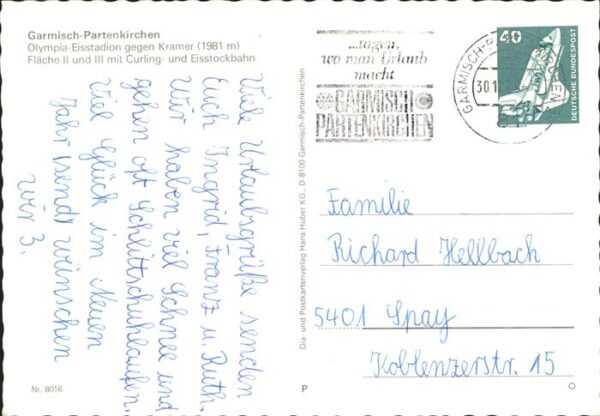 Garmisch-Partenkirchen
Olympia-Eisstadion gegen Kramer (1981 m)
Fläche II und III mit Curling- und Eisstockbahn
Viele Urlaubsgrüße senden
Euch Ingrid, Franz u. Ruth.
Wir haben viel Schnee und
gehen oft Schlittschuhlaufen.
Viel Glück im Neuen
Jahr sendt wünschen
wir 3.
Nr. 8016
Dia- und Postkartenverlag Hans Huber KG., D-8100 Garmisch-Partenkirchen
...tagen,
wo man Urlaub
macht
GARMISCH
PARTENKIRCHEN
GARMISCH-P
KIRCHEN
30.1
40
DEUTSCHE BUNDESPOST
Familie
Richard Hellbach
5401 Spay
Koblenzerstr. 15
P